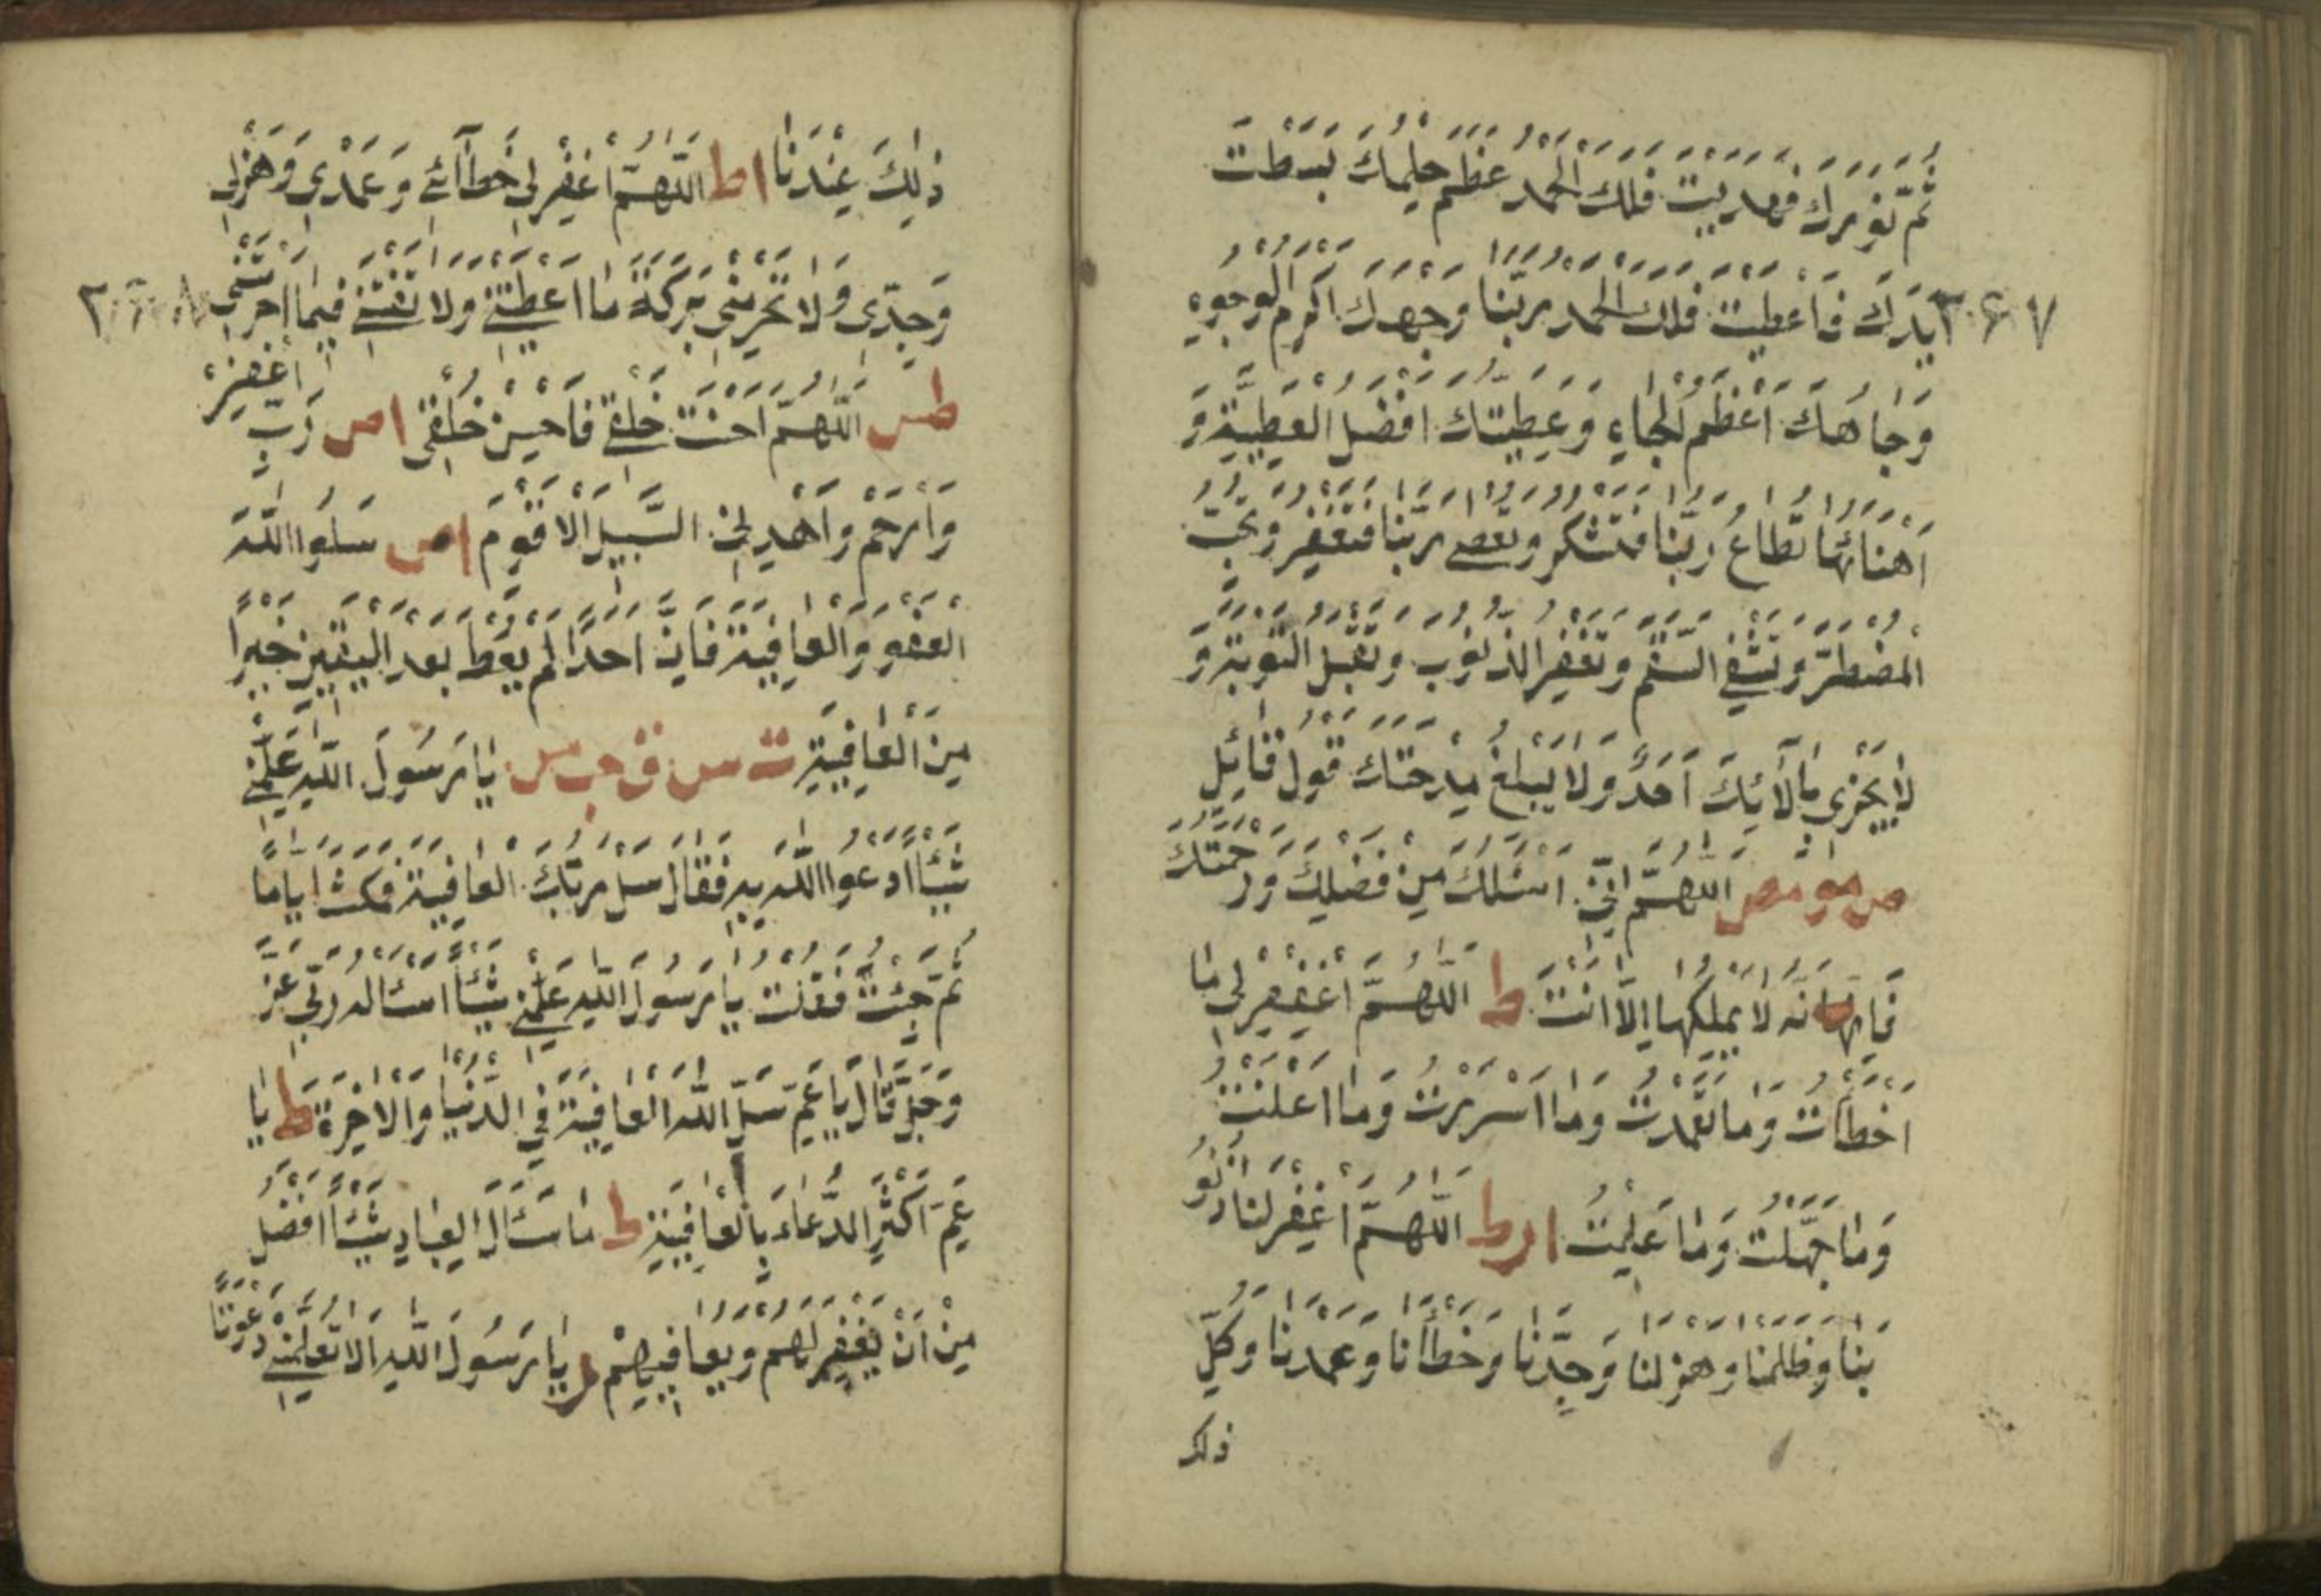 ثُمَّ نُورُكَ فَهَدَيْتَ فَلَكَ الْحَمْدُ عَظُمَ حِلْمُكَ بَسَطْتَ
٣٤٧
يَدَكَ فَاَعْطَيْتَ فَلَكَ الْحَمْدُ رَبَّنَا وَجْهُكَ اَكْرَمُ الْوُجُوهِ
وَجَاهُكَ اَعْظَمُ الْجَاهِ وَعَطِيَّتُكَ اَفْضَلُ الْعَطِيَّةِ وَ
اَهْنَائُهَا تُطَاعُ رَبَّنَا فَتَشْكُرُ وَتُعْصٰى رَبَّنَا فَتَغْفِرُ وَتُجِيبُ
الْمُضْطَرَّ وَتَشْفِي السَّقِيمَ وَتَغْفِرُ الذُّنُوبَ وَتَقْبَلُ التَّوْبَةَ وَ
لَا يَجْزِي بِاٰلَائِكَ اَحَدٌ وَلَا يَبْلُغُ مِدْحَتَكَ قَوْلُ قَائِلٍ
ص مو مص اَللّٰهُمَّ اِنِّي اَسْئَلُكَ مِنْ فَضْلِكَ وَرَحْمَتِكَ
فَاِنَّهَا نَّه لَا يَمْلِكُهَا اِلَّا اَنْتَ ط اَللّٰهُمَّ اغْفِرْ لِي مَا
اَخْطَأْتُ وَمَا تَعَمَّدْتُ وَمَا اَسْرَرْتُ وَمَا اَعْلَنْتُ
وَمَا جَهِلْتُ وَمَا عَلِمْتُ ا ر ط اَللّٰهُمَّ اغْفِرْ لَنَا ذُنُو
بَنَا وَظُلْمَنَا وَهَزْلَنَا وَجِدَّنَا وَخَطَأَنَا وَعَمْدَنَا وَكُلُّ
ذلك
ذٰلِكَ عِنْدَنَا ا ط اَللّٰهُمَّ اغْفِرْ لِي خَطَآئِي وَعَمْدِي وَهَزْلِي
وَجِدِّي وَلَا تَحْرِمْنِي بَرَكَةَ مَا اَعْطَيْتَنِي وَلَا تَفْتِنِّي فِيمَا اَحْرَمْتَنِي
٣٤٨
طس اَللّٰهُمَّ اَحْسَنْتَ خَلْقِي فَاَحْسِنْ خُلُقِي ا ص رَبِّ اغْفِرْ
وَارْحَمْ وَاهْدِنِي السَّبِيلَ الْاَقْوَمَ ا ص سَلُوا اللّٰهَ
الْعَفْوَ وَالْعَافِيَةَ فَاِنَّ اَحَدًا لَمْ يُعْطَ بَعْدَ الْيَقِينِ خَيْرًا
مِنَ الْعَافِيَةِ ت س ق حب مس يَا رَسُولَ اللّٰهِ عَلِّمْنِي
شَيْئًا اَدْعُو اللّٰهَ بِهِ فَقَالَ سَلْ رَبَّكَ الْعَافِيَةَ فَمَكَثَ اَيَّامًا
ثُمَّ جِئْتُ فَقُلْتُ يَا رَسُولَ اللّٰهِ عَلِّمْنِي شَيْئًا اَسْئَالُهُ رَبِّي عَزَّ
وَجَلَّ قَالَ يَا عَمِّ سَلِ اللّٰهَ الْعَافِيَةَ فِي الدُّنْيَا وَالْاٰخِرَةِ ط يَا
عَمِّ اَكْثِرِ الدُّعَاءَ بِالْعَافِيَةِ ط مَا سَئَالَ الْعِبَادِ شَيْئًا اَفْضَلَ
مِنْ اَنْ يَغْفِرَ لَهُمْ وَيُعَافِيَهِمْ ر يَا رَسُولَ اللّٰهِ اَلَا تُعَلِّمُنِي دَعْوَتًا